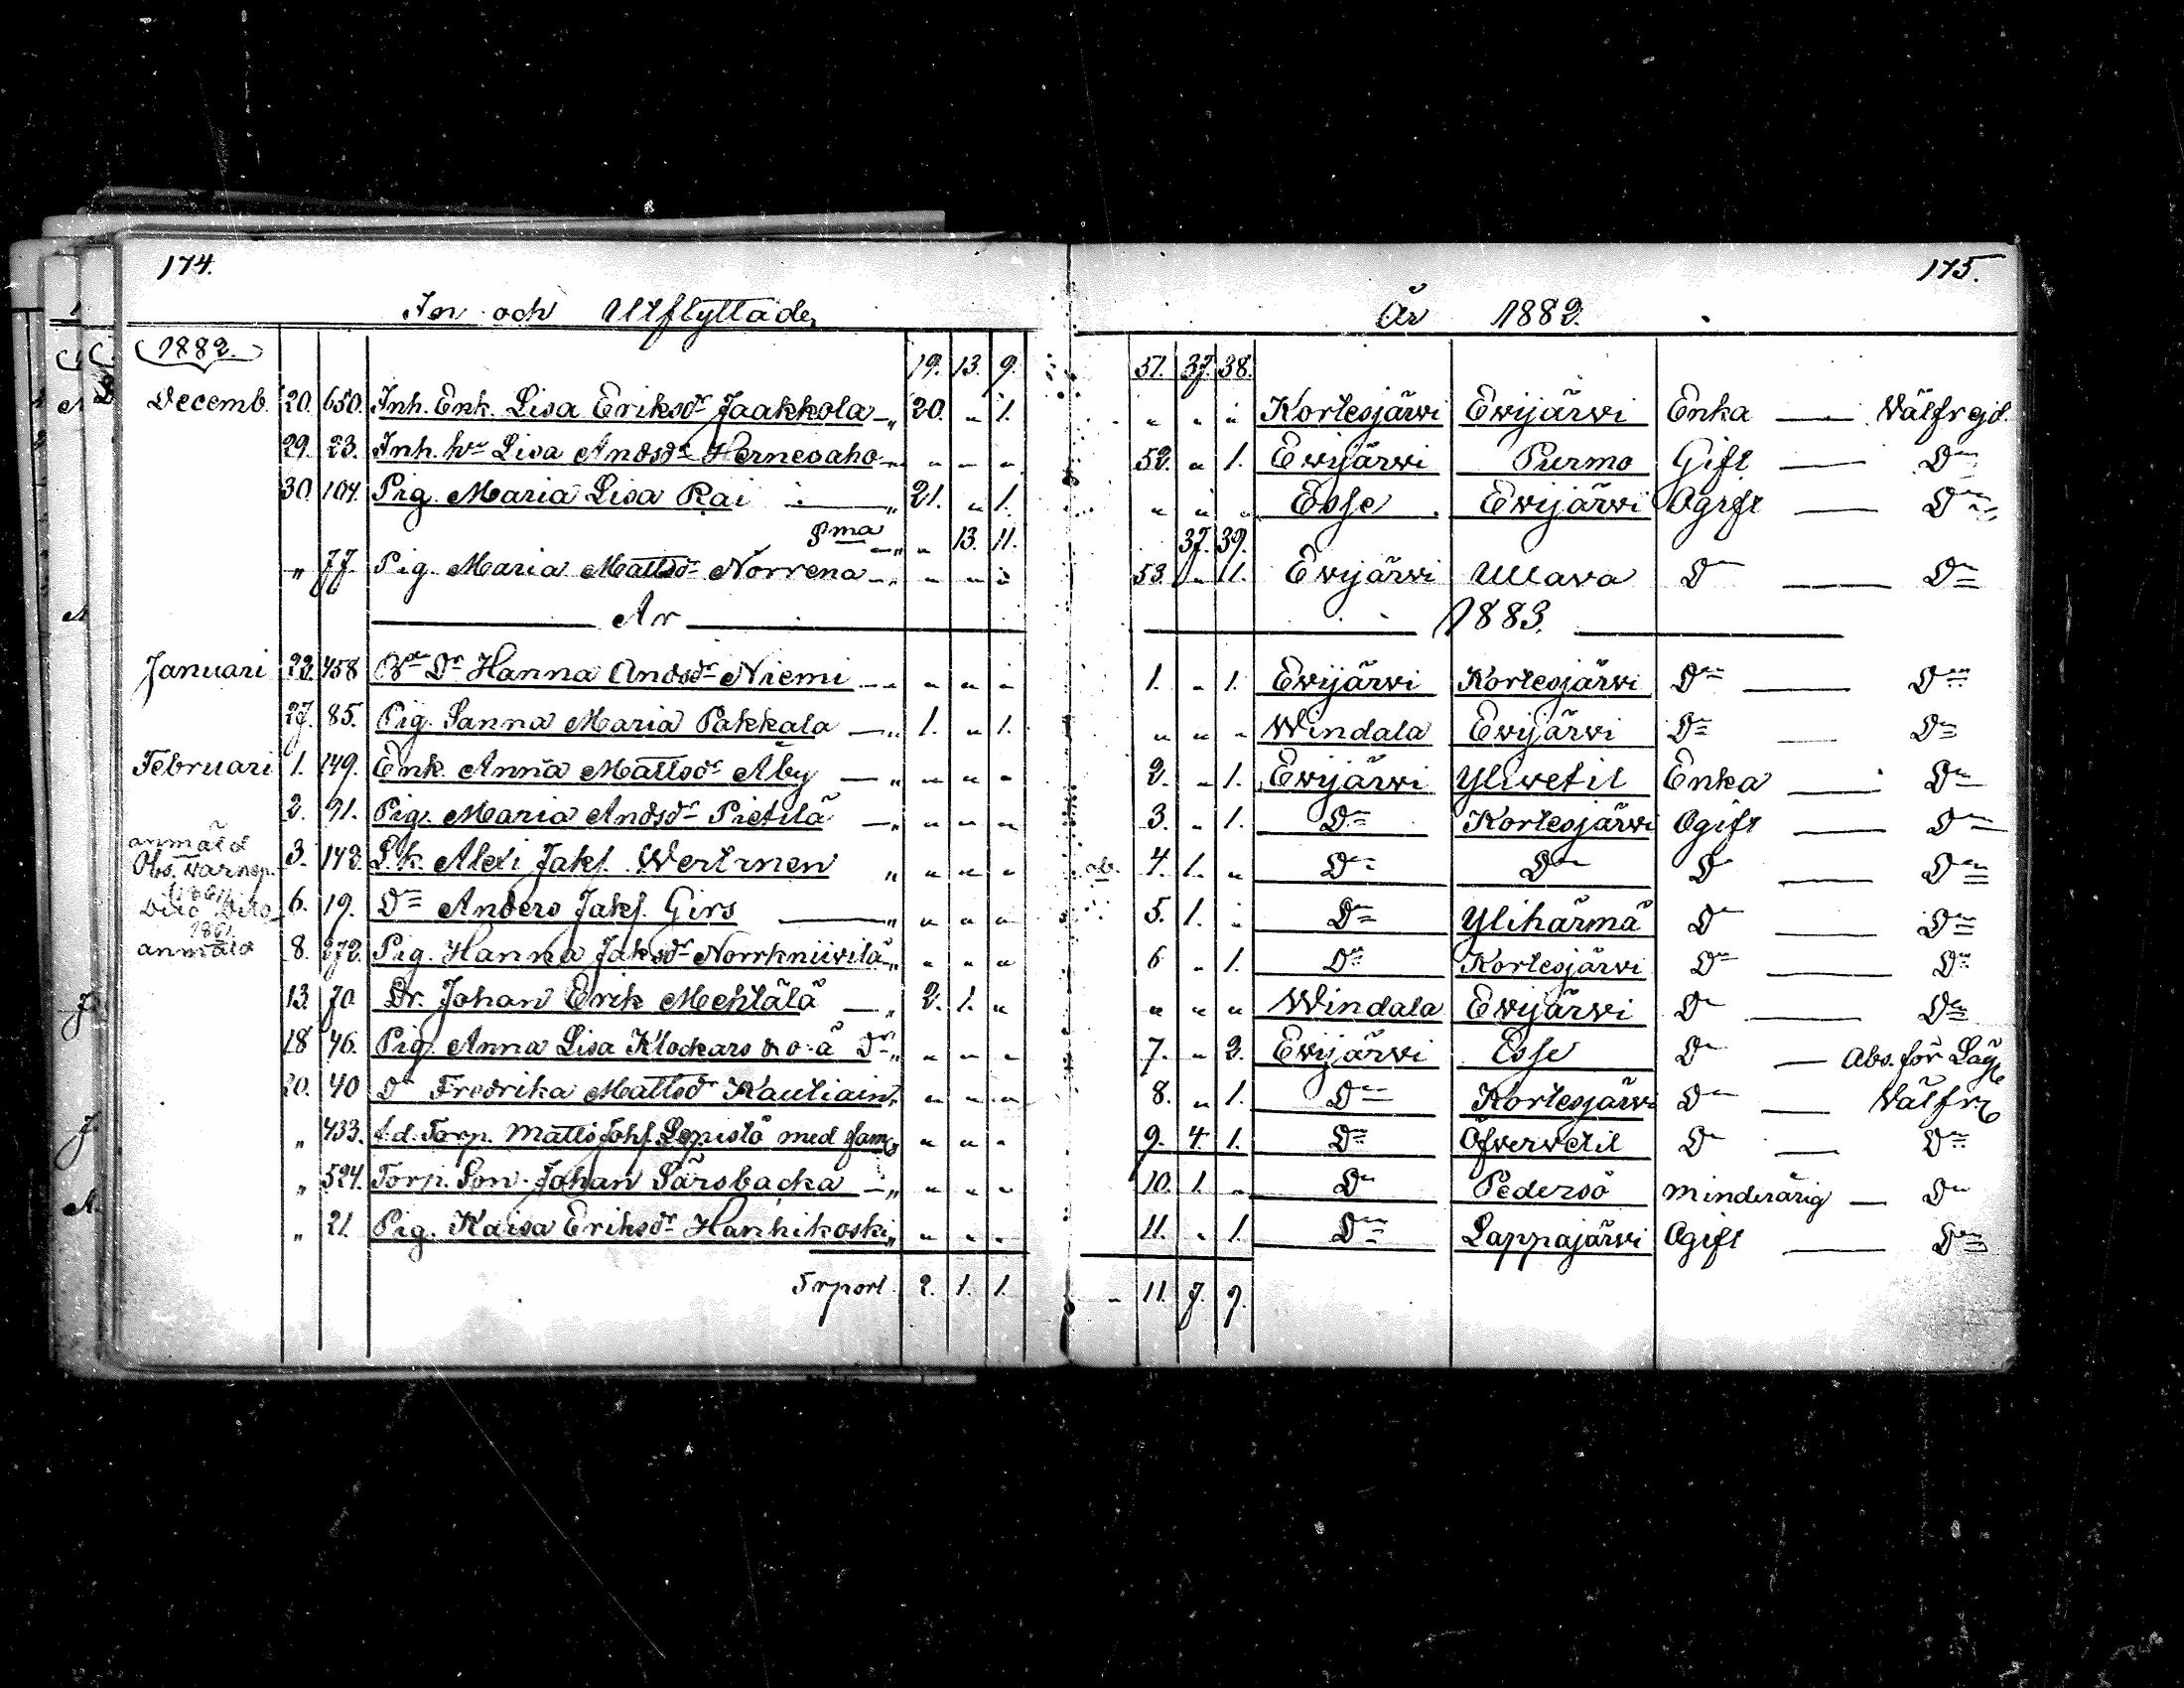 174. 175.
In och Utflyttade, År 1882.
1882. 19. 13. 9. 51. 37. 38.
Decemb. 20. 650. Inh. Enk. Lisa Eriksdr Jaakkola — „ 20. „ 1. „ „ „ Kortesjärvi Evijärvi Enka — Välfrejd.
29. 23. Inh. hu Lisa Andsdr Hernesaho „ „ „ „ 52. „ 1. Evijärvi Purmo Gift — Do
30. 104. Pig. Maria Lisa Rai — „ 21. „ 1. „ „ „ Esse Evijärvi Ogift — Do
Sma „ „ 13. 11. 37. 39.
„ 77. Pig. Maria Mattsdr Norrena „ „ „ „ 53. „ 1. Evijärvi Ullava Do — Do
År 1883.
Januari 22. 458 Dr Hanna Andsdr Niemi „ „ „ „ 1. „ 1. Evijärvi Kortesjärvi Do — Do
27. 85. Pig. Sanna Maria Pakkala — „ 1. „ 1. „ „ „ Windala Evijärvi Do — Do
Februari 1. 149. Enk. Anna Mattsdr Åby — „ „ „ „ 2. „ 1. Evijärvi Ylivetil Enka — Do
2. 91. Pig. Maria Andsdr Pietilä — „ „ „ „ 3. „ 1. Do Kortesjärvi Ogift — Do
anmäld
3. 142. Alexi Jakf. Wertinen „ „ „ „ 4. 1. „ Do Do Do — Do
6. 19. Do Anders Jakf. Girs — „ „ „ „ 5. 1. „ Do Ylihärmä Do — Do
anmäld 8. 272. Pig. Hanna Jaksdr Norrkniivilä „ „ „ „ 6 „ 1. Do Kortesjärvi Do — Do
13. 70. Dr. Johan Erik Mehtälä — „ 2. 1. „ „ „ „ Windala Evijärvi Do — Do
18 46. Pig. Anna Lisa Klockars o. ä Dr „ „ „ „ 7. „ 2. Evijärvi Esse Do — Abs. för
20. 40 Do Fredrika Mattsdr Kautiain „ „ „ „ 8. „ 1. Do Kortesjärvi Do — Välfr.
„ 433. f.d. Torp. Matts Johf. Lepistö med fam „ „ „ 9. 4. 1. Do Öfvervetil Do — Do
„ 524. Torp. Son. Johan Särsbacka — „ „ „ „ 10. 1. „ Do Pedersö minderårig — Do
„ 21. Pig. Kaisa Eriksdr Hanhikoski „ „ „ „ 11. „ 1. Do Lappajärvi Ogift — Do
Trport. 2. 1. 1. 11. 7. 9.